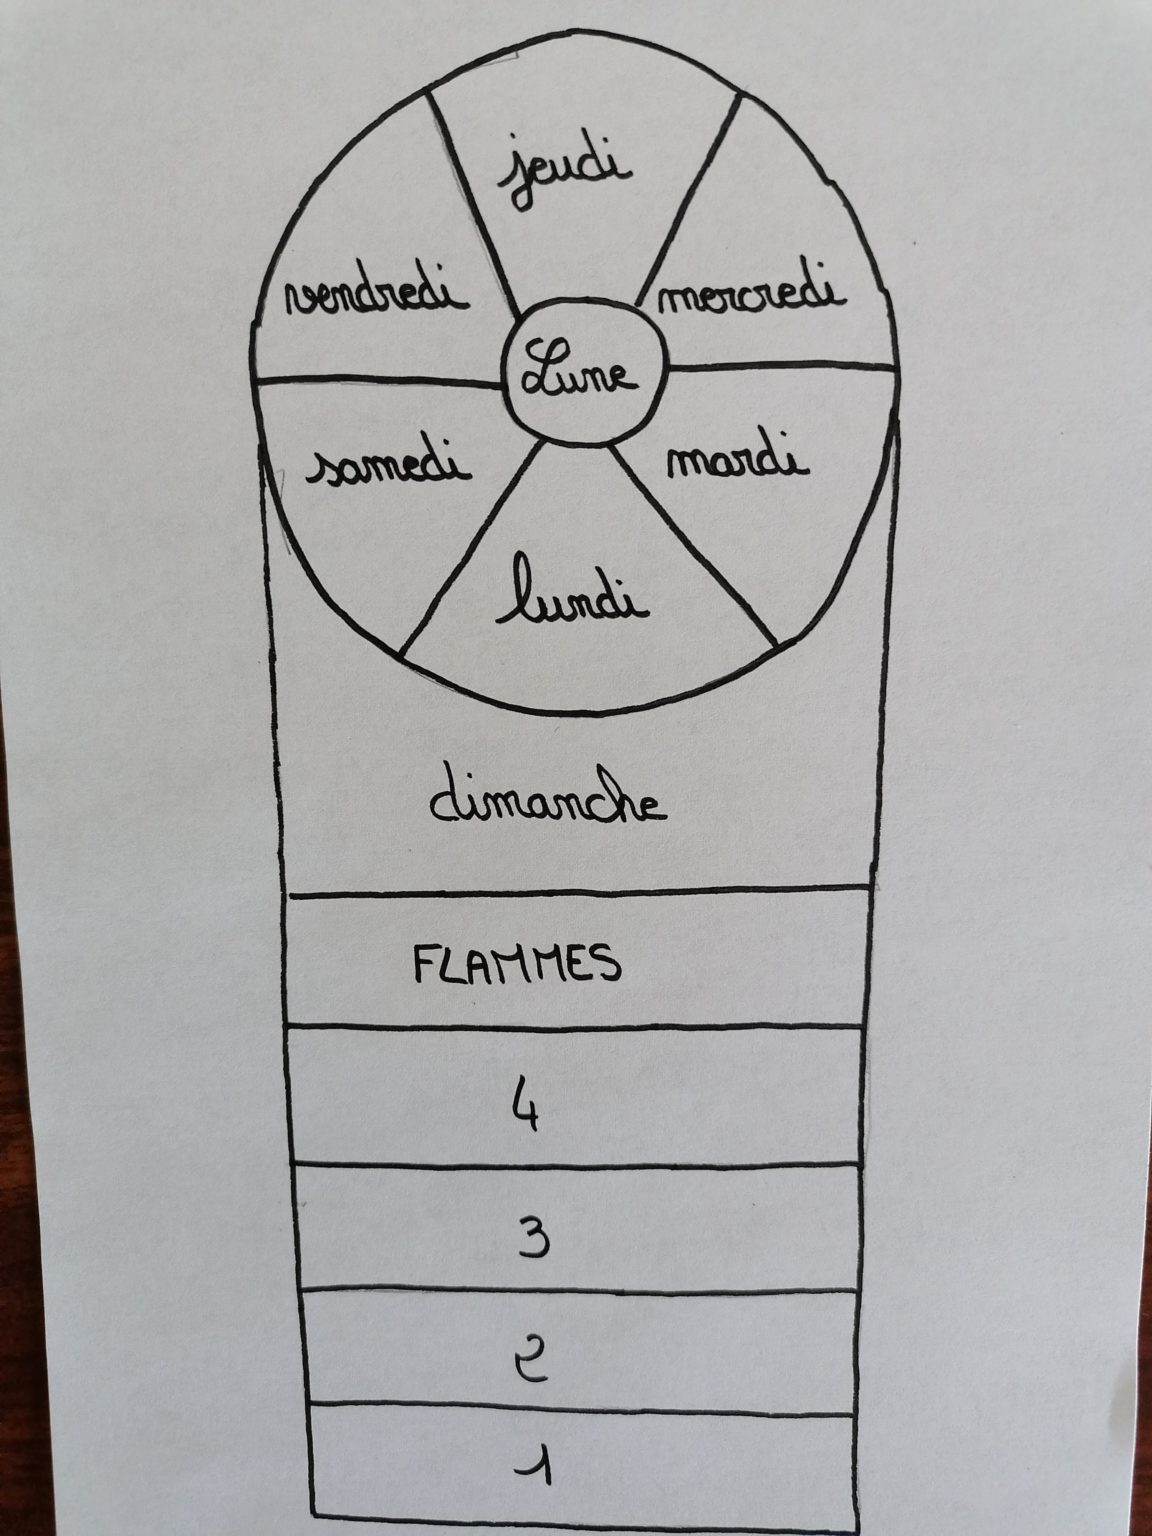 jeudi
vendredi
mercredi
Lune
samedi
mardi
lundi
dimanche
FLAMMES
4
3
2
1